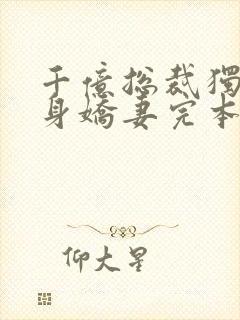 千億総裁獨
身嬌妻完本
仰大星